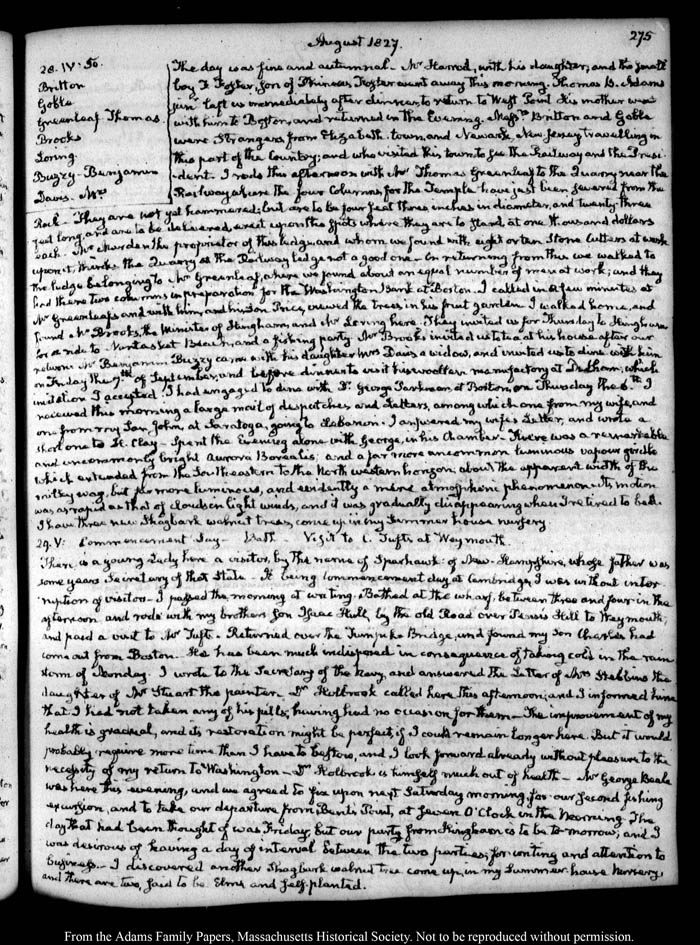 August 1827.
275
28. IV: 50.
Britton
Goble
Greenleaf Thomas.
Brooks
Loring
Bugry- Benjamin
Davis. Mrs
The day was fine and autumnal- Mr Harrod, with his daughter, and the small
boy F. Foster, Son of Phineas Foster went away this morning. Thomas B. Adams
junr. left us immediately after dinner, to return to West Point. His mother went
with him to Boston, and returned in the Evening. Messrs Britton and Goble
were Strangers from Elizabeth-town, and Newark, New Jersey travelling in
this part of the Country; and who visited this town to see the Railway and the Presi-
-dent. I rode this afternoon with Mr Thomas Greenleaf to the Quarry near the
Railway where the four Columns for the Temple have just been severed from the
Rock- They are not yet hammered; but are to be four feet three inches in diameter, and twenty-three
feet long, and are to be delivered, erect upon the Spots where they are to stand, at one thousand dollars
each- Mr the proprietor of this ledge, and whom we found with eight or ten Stone cutters at work
upon it, thinks the Quarry at the Railway ledge not a good one- On returning from this we walked to
the ledge belonging to Mr Greenleaf, where we found about an equal number of men at work; and they
had there two columns in preparation for the Washington Bank at Boston. I called in a few minutes at
Mr Greenleaf's and with him, and his Son Price, viewed the trees, in his fruit garden- I walked home, and
found Mr Brooks, the Minister of Hingham, and Mr Loring here. They invited us for Thursday to Hingham
for a ride to Nantasket Beach, and a fishing party. Mr Brooks invited us to tea at his house after our
return. Mr Benjamin Bugry came with his daughter Mrs Davis a widow, and invited us to dine with him
on Friday the 7th of September, and before dinner to visit his woollen manufactory at Dedham; which
invitation I accepted. I had engaged to dine with Dr George Parkman at Boston, on Thursday the 6th I
received this morning a large mail of despatches and Letters, among which one from my wife, and
one from my Son John, at Saratoga, going to Lebanon. I answered my wife's Letter, and wrote a
short one to H. Clay- Spent the evening alone with George, in his Chamber- There was a remarkable
and uncommonly bright Aurora Borealis; and a far more uncommon luminous vapour girdle
which extended from the Southeastern to the North western horizon, about the apparent width of the
milky way, but far more luminous, and evidently a mere atmospheric phenomenon- Its motion
was as rapid as that of clouds in light winds, and it was gradually disappearing when I retired to bed.
I have three new Shagbark walnut trees, come up in my Summer house nursery
29. V: Commencement day- Visit to C. Tufts at Weymouth.
There is a young Lady here a visitor, by the name of Sparhawk; of New-Hampshire, whose father was
some years Secretary of that State- It being Commencement day at Cambridge, I was without inter-
ruption of visitors- I passed the morning at writing. Bathed at the wharf, between three and four in the
afternoon and rode with my brother's Son Isaac Hull, by the old Road over Penn's Hill to Weymouth,
and paid a visit to Mr Tufts- Returned over the Turnpike Bridge, and found my Son Charles had
come out from Boston- He has been much indisposed in consequence of taking cold in the rain
storm of Monday. I wrote to the Secretary of the Navy, and answered the Letter of Mrs Stebbins the
daughter of Mr Stuart the painter. Dr Holbrook called here this afternoon; and I informed him
that I had not taken any of his pills, having had no occasion for them- The improvement of my
health is gradual, and its restoration might be perfect, if I could remain longer here. But it would
probably require more time than I have to bestow, and I look forward already without pleasure to the
necessity of my return to Washington- Dr Holbrook is himself much out of health- Mr George Beale
was here this evening, and we agreed to fix upon next Saturday morning, for our second fishing
excursion, and to take our departure from Bent's Point, at Seven O'Clock in the Morning. The
day that had been thought of was Friday, but our party from Hingham is to be to-morrow; and I
was desirous of having a day of interval between the two parties, for writing and attention to
business- I discovered another Shagbark walnut tree come up, in my Summer-house Nursery,
and there are two, said to be Elms and self-planted.
From the Adams Family Papers, Massachusetts Historical Society. Not to be reproduced without permission.